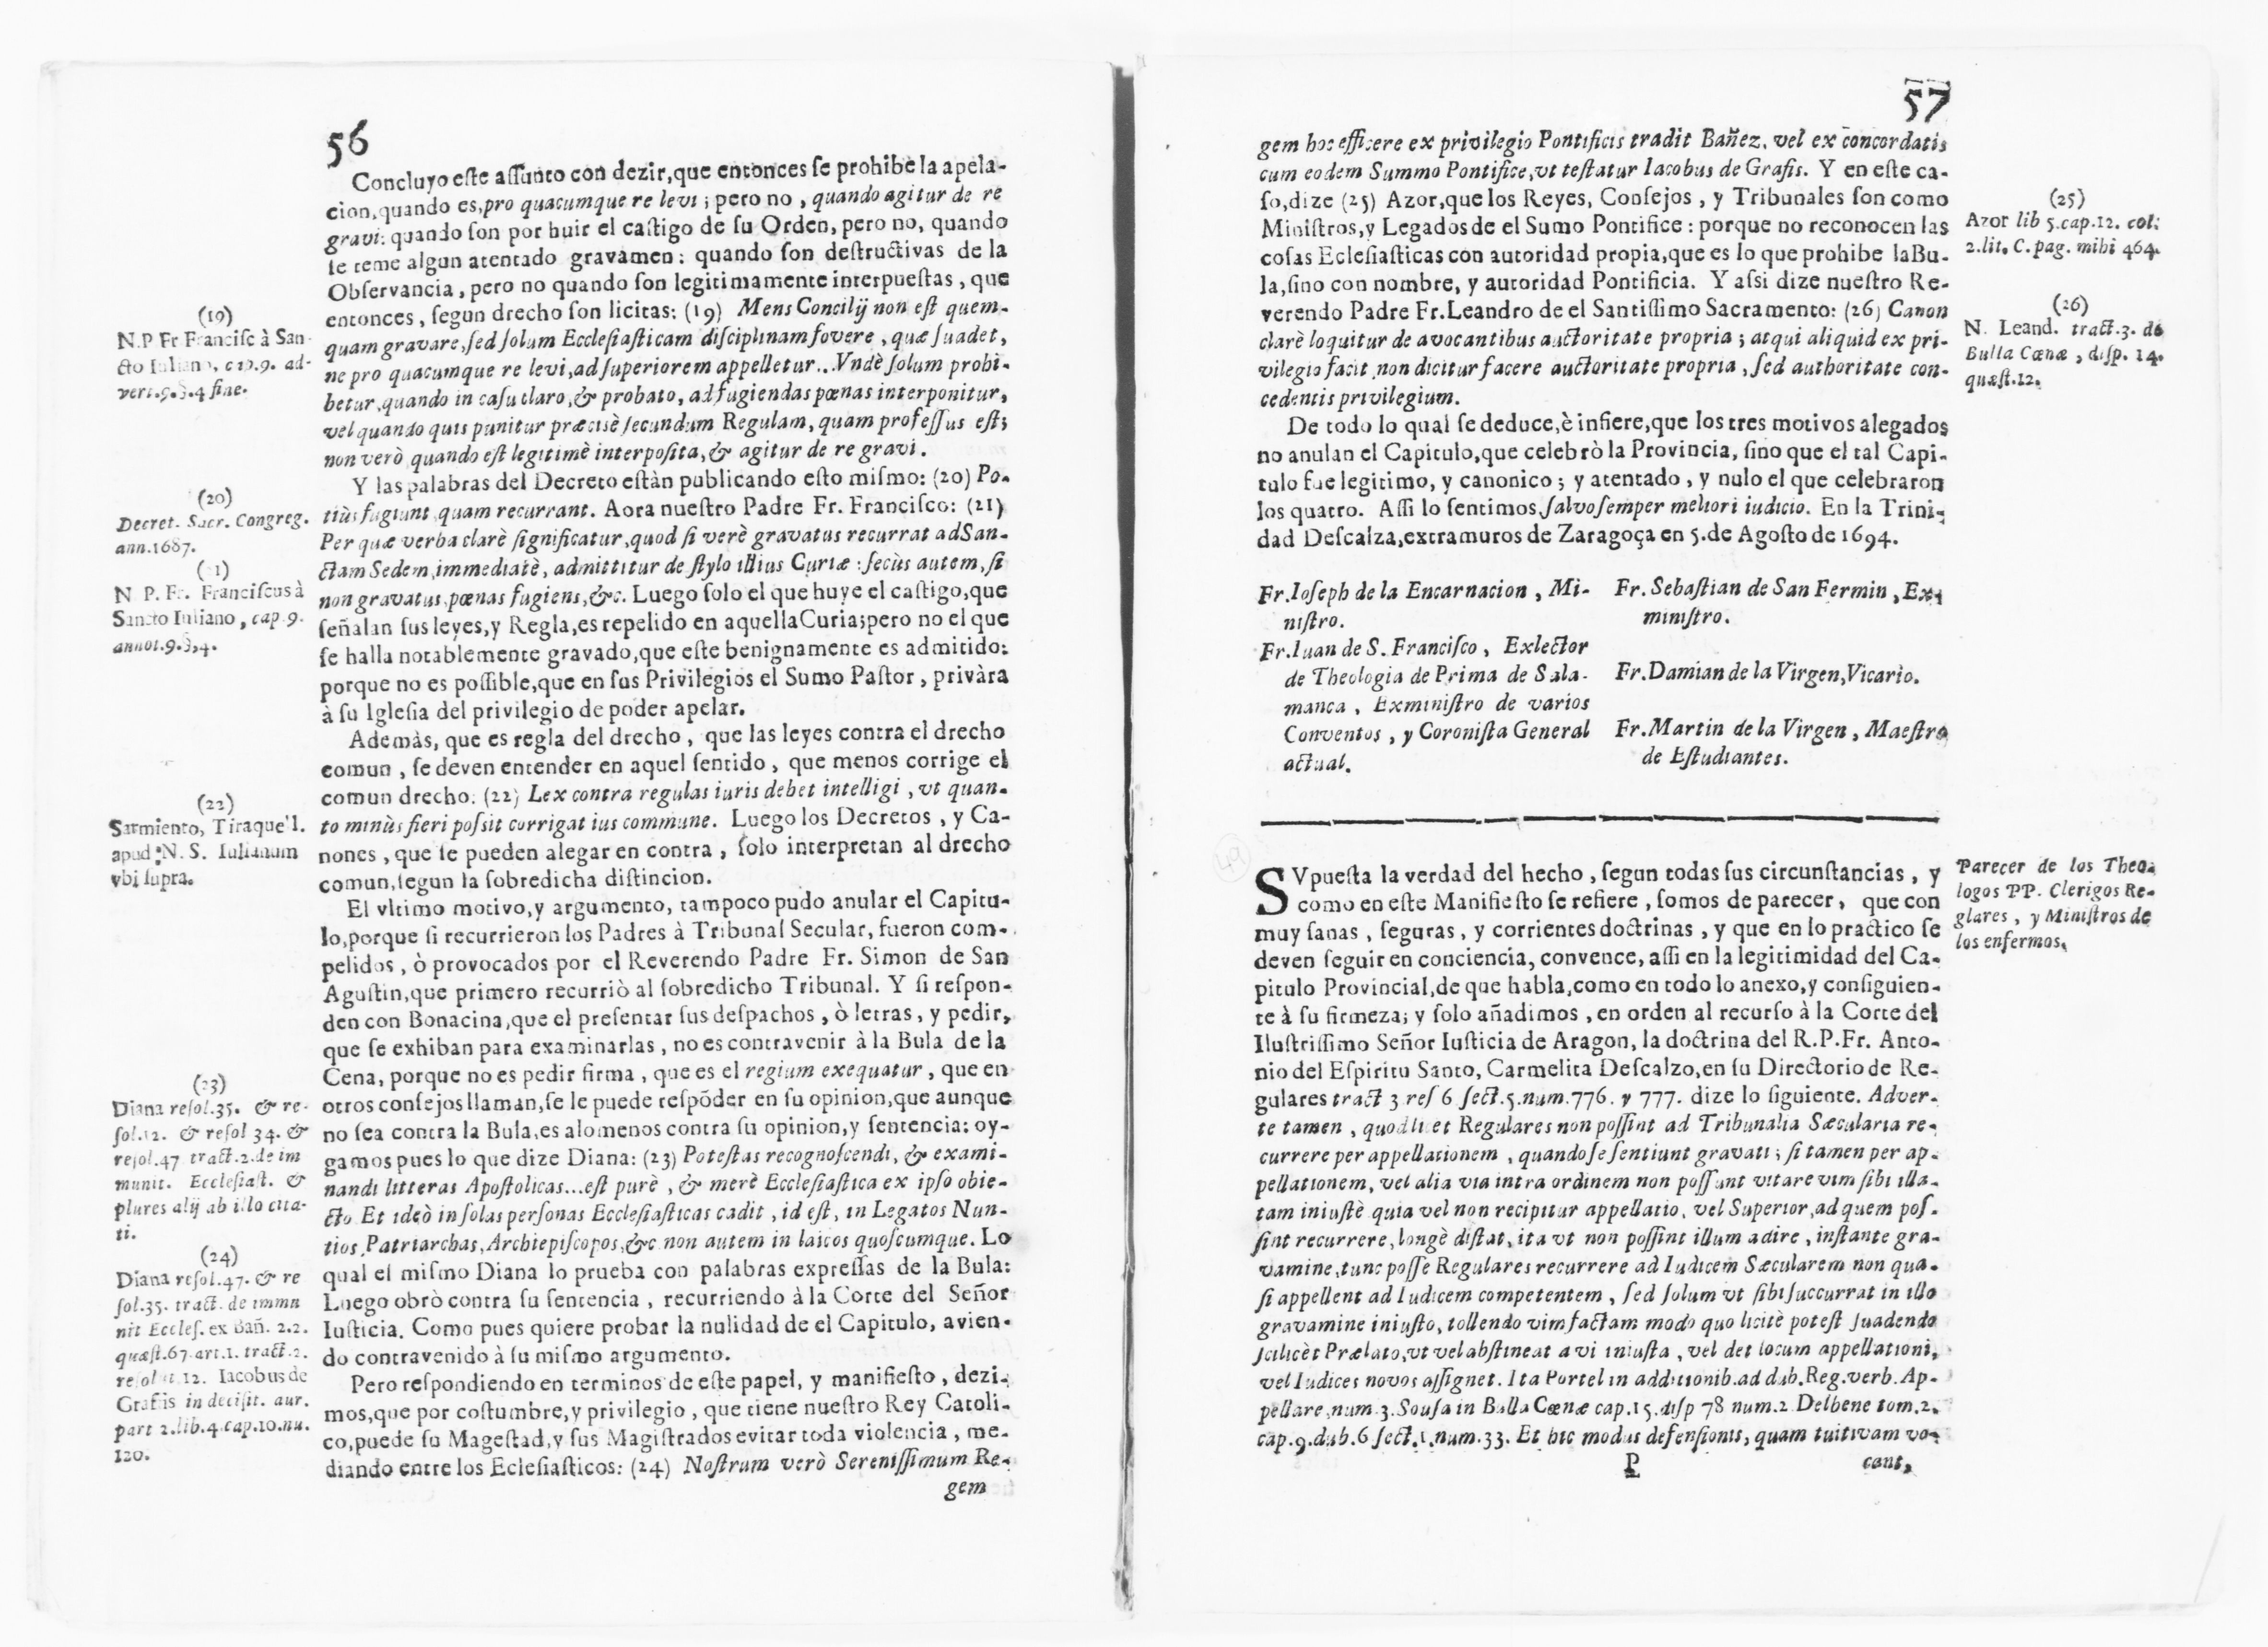 56
Concluyo este assunto con dezir,que entonces se prohibe la apela-
cion,quando es,pro quacumque re levi; pero no, quando agitur de re
gravi: quando son por huir el castigo de su Orden, pero no, quando
se teme algun atentado gravamen: quando son destructivas de la
Observancia, pero no quando son legitimamente interpuestas, que
entonces, segun drecho son licitas: (19) Mens Concilij non est quem-
quam gravare,sed solum Ecclesiasticam disciplinam fovere, quæ suadet,
ne pro quacumque re levi,ad superiorem appelletur...Vndè solum prohi-
betur,quando in casu claro,& probato, ad fugiendas pœnas interponitur,
vel quando quis punitur præcisè secundum Regulam, quam professus est;
non verò quando est legitimè interposita,& agitur de re gravi.
Y las palabras del Decreto estàn publicando esto mismo: (20) Po-
tiùs fugiunt quam recurrant. Aora nuestro Padre Fr. Francisco: (21)
Per quæ verba clarè significatur,quod si verè gravatus recurrat ad San-
ctam Sedem,immediatè, admittitur de stylo illius Curiæ: secùs autem, si
non gravatus,pœnas fugiens,&c. Luego solo el que huye el castigo,que
señalan sus leyes,y Regla,es repelido en aquella Curia;pero no el que
se halla notablemente gravado,que este benignamente es admitido:
porque no es possible,que en sus Privilegios el Sumo Pastor, privàra
à su Iglesia del privilegio de poder apelar.
Ademàs, que es regla del drecho, que las leyes contra el drecho
comun, se deven entender en aquel sentido, que menos corrige el
comun drecho: (22) Lex contra regulas iuris debet intelligi, vt quan-
to minùs fieri possit corrigat ius commune. Luego los Decretos, y Ca-
nones, que se pueden alegar en contra, solo interpretan al drecho
comun,segun la sobredicha distincion.
El vltimo motivo,y argumento, tampoco pudo anular el Capitu-
lo,porque si recurrieron los Padres à Tribunal Secular, fueron com-
pelidos, ò provocados por el Reverendo Padre Fr. Simon de San
Agustin,que primero recurriò al sobredicho Tribunal. Y si respon-
den con Bonacina,que el presentar sus despachos, ò letras, y pedir,
que se exhiban para examinarlas, no es contravenir à la Bula de la
Cena, porque no es pedir firma, que es el regium exequatur, que en
otros consejos llaman,se le puede respõder en su opinion,que aunque
no sea contra la Bula,es alomenos contra su opinion,y sentencia: oy-
gamos pues lo que dize Diana: (23) Potestas recognoscendi, & exami-
nandi litteras Apostolicas...est purè, & merè Ecclesiastica ex ipso obie-
cto Et ideò in solas personas Ecclesiasticas cadit, id est, in Legatos Nun-
tios,Patriarchas,Archiepiscopos,&c non autem in laicos quoscumque. Lo
qual el mismo Diana lo prueba con palabras expressas de la Bula:
Luego obrò contra su sentencia, recurriendo à la Corte del Señor
Iusticia. Como pues quiere probar la nulidad de el Capitulo, avien-
do contravenido à su mismo argumento.
Pero respondiendo en terminos de este papel, y manifiesto, dezi-
mos,que por costumbre,y privilegio, que tiene nuestro Rey Catoli-
co,puede su Magestad,y sus Magistrados evitar toda violencia, me-
diando entre los Eclesiasticos: (24) Nostrum verò Serenissimum Re-
gem
(19)
N.P Fr Francisc à San-
cto Iuliano, cap.9. ad-
vert.9.§.4 fine.
(20)
Decret. Sacr. Congreg.
ann.1687.
(21)
N. P. Fr. Franciscus à
Sancto Iuliano, cap.9.
annot.9.§.4.
(22)
Sarmiento, Tiraquell.
apud N. S. Iulianum
vbi supra.
(23)
Diana resol.35. & re-
sol.12. & resol 34. &
resol.47 tract.2.de im
munit. Ecclesiast. &
plures alij ab illo cita-
ti.
(24)
Diana resol.47. & re
sol.35. tract. de immu
nit Eccles. ex Bañ. 2.2.
quæst.67.art.1. tract.2.
resolut.12. Iacobus de
Grafiis in decisit. aur.
part 2.lib.4.cap.10.nu.
120.
57
gem hoc efficere ex privilegio Pontificis tradit Bañez, vel ex concordatis
cum eodem Summo Pontifice,vt testatur Iacobus de Grafis. Y en este ca-
so,dize (25) Azor,que los Reyes, Consejos, y Tribunales son como
Ministros,y Legados de el Sumo Pontifice: porque no reconocen las
cosas Eclesiasticas con autoridad propia,que es lo que prohibe la Bu-
la,sino con nombre, y autoridad Pontificia. Y assi dize nuestro Re-
verendo Padre Fr.Leandro de el Santissimo Sacramento: (26) Canon
clarè loquitur de avocantibus auctoritate propria; atqui aliquid ex pri-
vilegio facit non dicitur facere auctoritate propria, sed authoritate con-
cedentis privilegium.
De todo lo qual se deduce,è infiere,que los tres motivos alegados
no anulan el Capitulo,que celebrò la Provincia, sino que el tal Capi-
tulo fue legitimo, y canonico; y atentado, y nulo el que celebraron
los quatro. Assi lo sentimos,salvo semper meliori iudicio. En la Trini-
dad Descalza,extramuros de Zaragoça en 5.de Agosto de 1694.
Fr.Ioseph de la Encarnacion, Mi-
nistro.
Fr.Iuan de S. Francisco, Exlector
de Theologia de Prima de Sala-
manca, Exministro de varios
Conventos, y Coronista General
actual.
Fr. Sebastian de San Fermin, Ex-
ministro.
Fr.Damian de la Virgen,Vicario.
Fr.Martin de la Virgen, Maestro
de Estudiantes.
(25)
Azor lib 5.cap.12. col.
2.lit. C.pag. mihi 464.
(26)
N. Leand. tract.3. de
Bulla Cœnæ, disp. 14.
quæst.12.
SVpuesta la verdad del hecho, segun todas sus circunstancias, y
como en este Manifiesto se refiere, somos de parecer, que con
muy sanas, seguras, y corrientes doctrinas, y que en lo practico se
deven seguir en conciencia, convence, assi en la legitimidad del Ca-
pitulo Provincial,de que habla,como en todo lo anexo,y consiguien-
te à su firmeza; y solo añadimos, en orden al recurso à la Corte del
Ilustrissimo Señor Iusticia de Aragon, la doctrina del R.P.Fr. Anto-
nio del Espiritu Santo, Carmelita Descalzo,en su Directorio de Re-
gulares tract 3 res 6 sect.5.num.776. y 777. dize lo siguiente. Adver-
te tamen, quod licet Regulares non possint ad Tribunalia Sæcularia re-
currere per appellationem, quando se sentiunt gravati; si tamen per ap-
pellationem, vel alia via intra ordinem non possunt vitare vim sibi illa-
tam iniustè quia vel non recipitur appellatio, vel Superior,ad quem pos-
sint recurrere,longè distat,ita vt non possint illum adire, instante gra-
vamine,tunc posse Regulares recurrere ad Iudicem Sæcularem non qua-
si appellent ad Iudicem competentem, sed solum vt sibi succurrat in illo
gravamine iniusto, tollendo vim factam modo quo licitè potest suadendo
scilicèt Prælato,vt vel abstineat a vi iniusta, vel det locum appellationi,
vel Iudices novos assignet. Ita Portel in additionib.ad dub.Reg.verb.Ap-
pellare,num.3.Sousa in Bulla Cœnæ cap.15.disp 78 num.2 Delbene tom.2.
cap.9.dub.6 sect.1.num.33. Et hic modus defensionis, quam tuitivam vo-
P
cant,
Parecer de los Theo-
logos PP. Clerigos Re-
glares, y Ministros de
los enfermos.
49